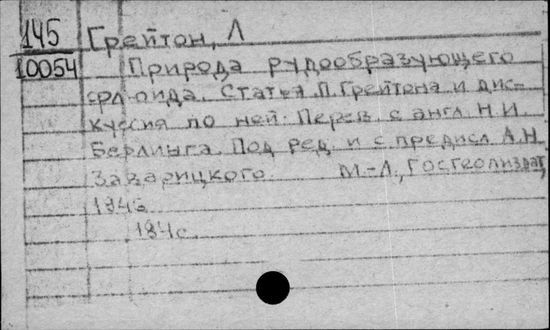 145 Грейтон, Л
10054 Природа рудообразующего
флюида. Статья Л. Грейтона и дис-
куссия по ней. Перев. с англ. Н.И.
Берлинга. Под ред. и с предисл. А.Н.
Заварицкого. М.-Л., Госгеолиздат,
194
184с.